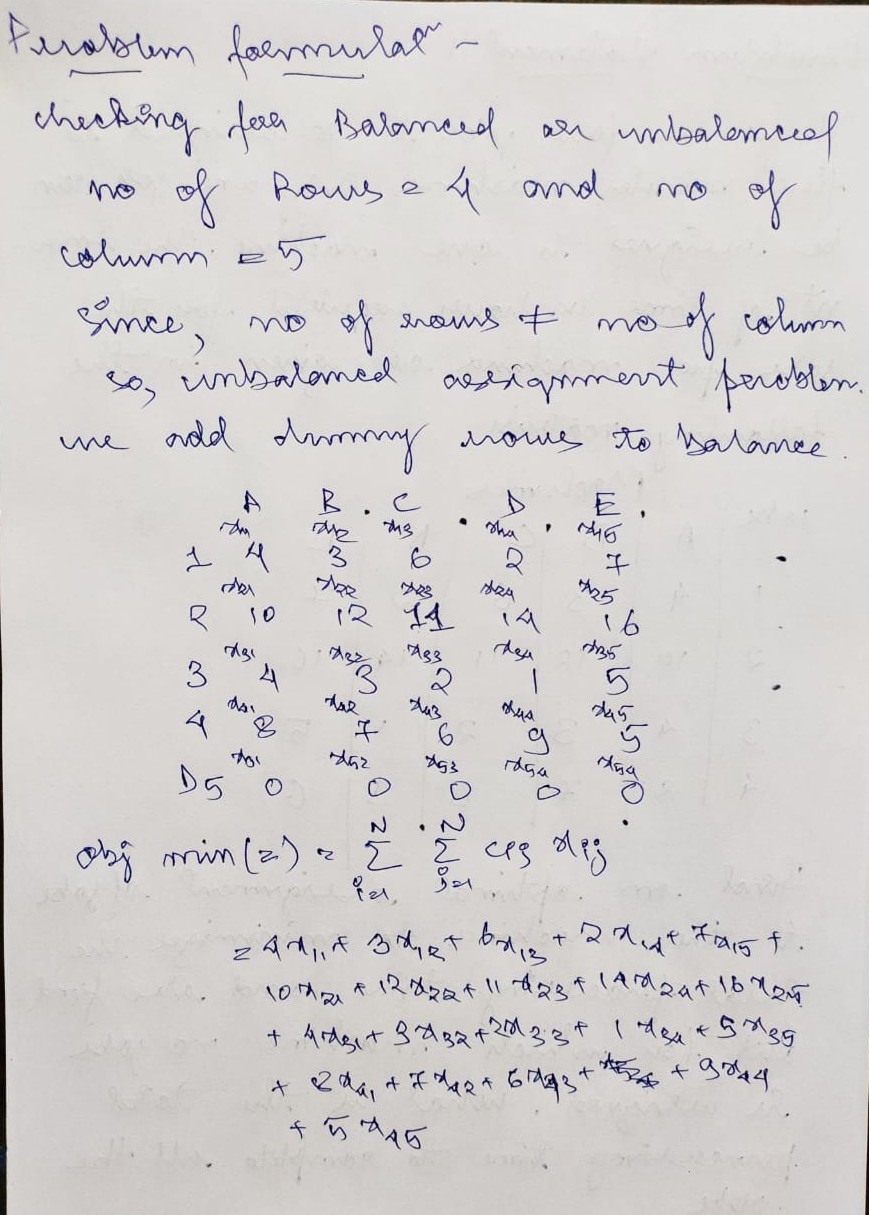 Problem formulatn -
checking for Balanced or unbalanced
no of Rows = 4 and no of
column = 5
Since, no of rows ≠ no of column
so, unbalanced assignment problem.
we add dummy rows to balance.
A B C D E
x11 x12 x13 x14 x15
1 4 3 6 2 7
x21 x22 x23 x24 x25
2 10 12 11 14 16
x31 x32 x33 x34 x35
3 4 3 2 1 5
x41 x42 x43 x44 x45
4 8 7 6 9 5
x51 x52 x53 x54 x54
D5 0 0 0 0 0
obj min(z) = N∑i=1 N∑j=1 cij xij
= 4x11 + 3x12 + 6x13 + 2x14 + 7x15 +
10x21 + 12x22 + 11x23 + 14x24 + 16x25
+ 4x31 + 3x32 + 2x33 + 1x34 + 5x35
+ 8x41 + 7x42 + 6x43 + + 9x44
+ 5x45